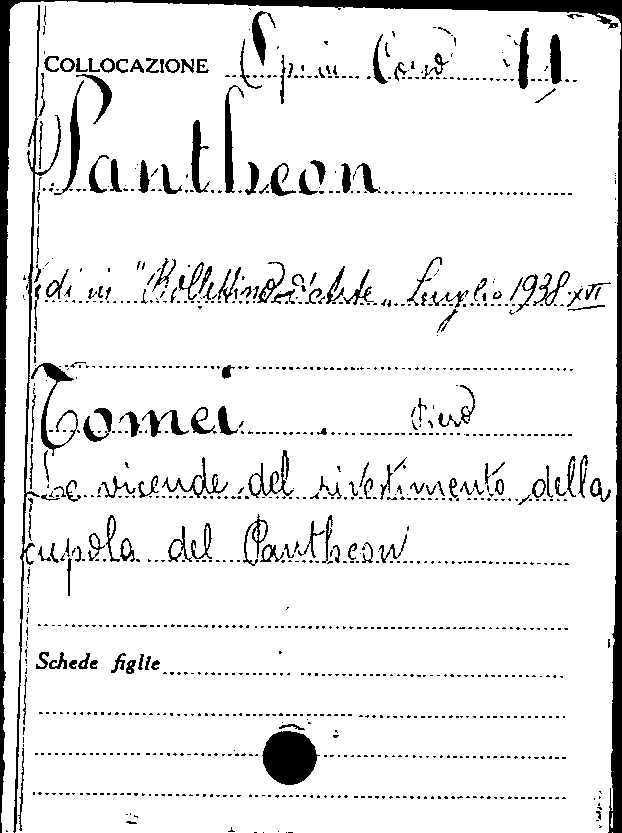 COLLOCAZIONE Op. in Corso 11
Pantheon
Vedi in "Bollettino d'Arte" Luglio 1938-XVI
Tomei . Piero
Le vicende del rivestimento della
cupola del Pantheon
Schede figlie